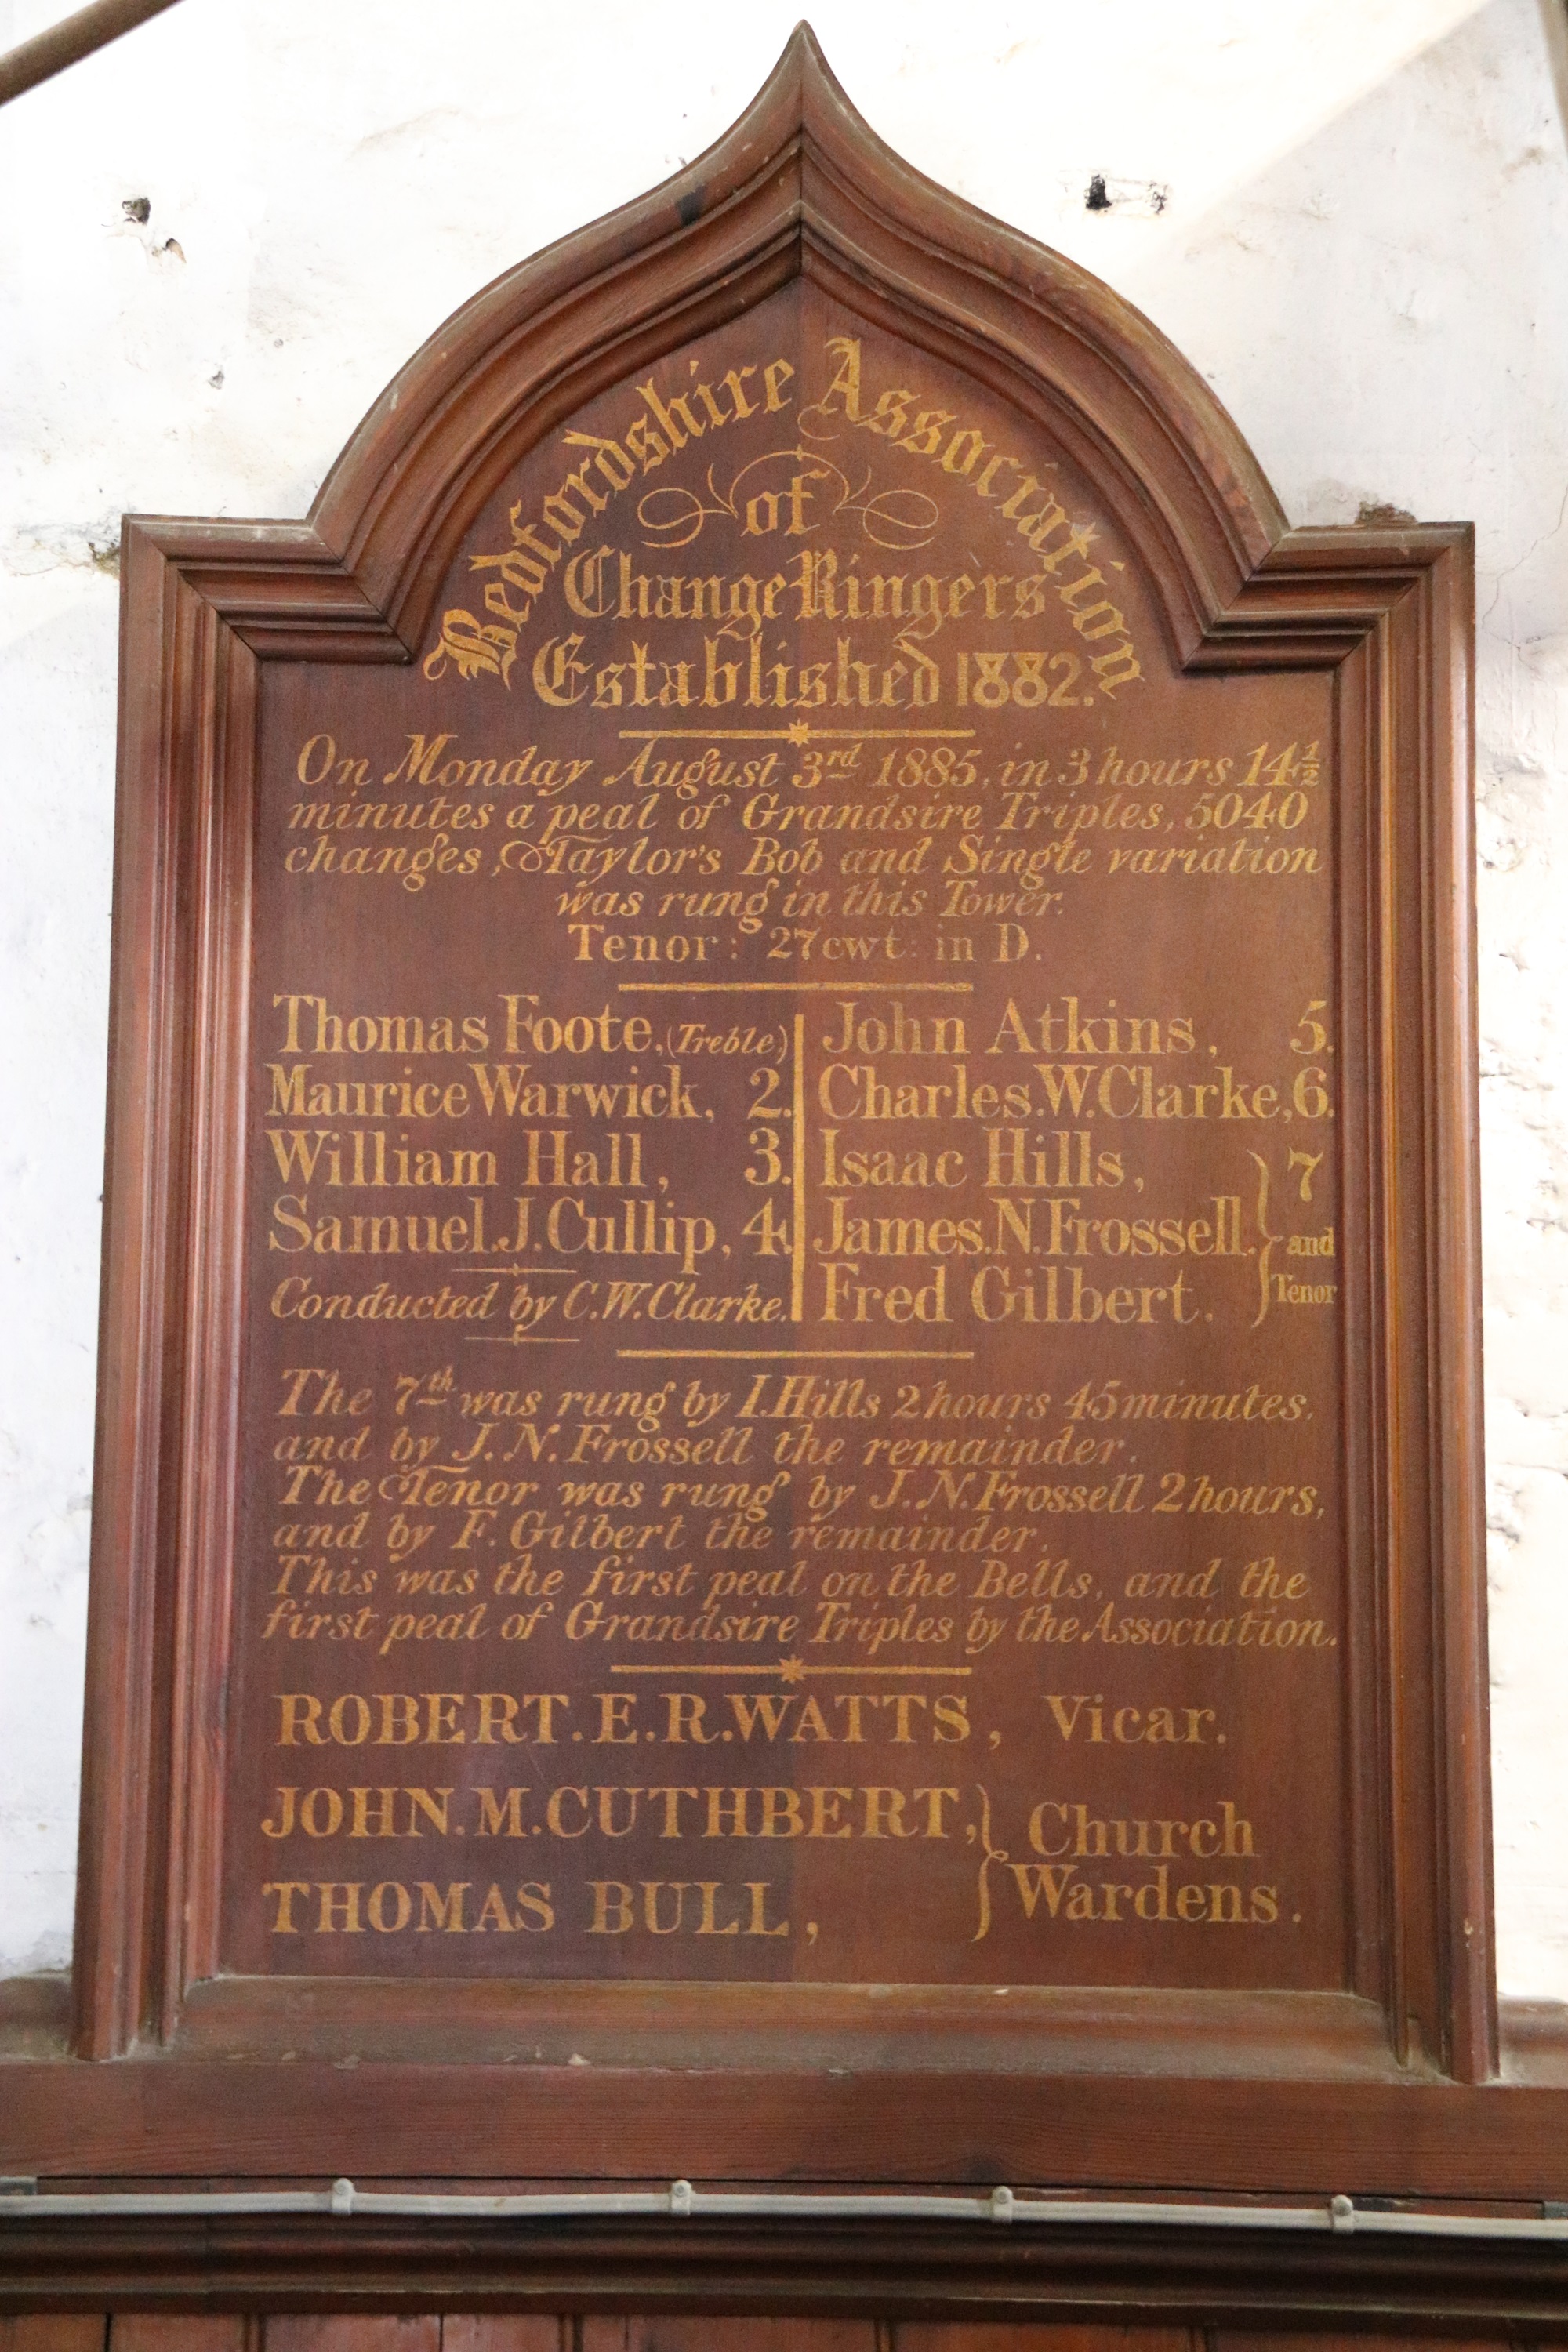 Bedfordshire Association
of
Change Ringers
Established 1882.
On Monday August 3rd 1885, in 3 hours 14½
minutes a peal of Grandsire Triples, 5040
changes, Taylor's Bob and Single variation
was rung in this Tower.
Tenor: 27cwt: in D.
Thomas Foote, (Treble)
Maurice Warwick, 2.
William Hall, 3.
Samuel.J.Cullip, 4.
Conducted by C.W.Clarke.
John Atkins, 5.
Charles.W.Clarke, 6.
Isaac Hills,
James.N.Frossell.
Fred Gilbert.
7
and
Tenor
The 7th was rung by I.Hills 2 hours 45 minutes,
and by J.N.Frossell the remainder.
The Tenor was rung by J.N.Frossell 2 hours,
and by F. Gilbert the remainder.
This was the first peal on the Bells, and the
first peal of Grandsire Triples by the Association.
ROBERT.E.R.WATTS, Vicar.
JOHN.M.CUTHBERT,
THOMAS BULL,
Church
Wardens.